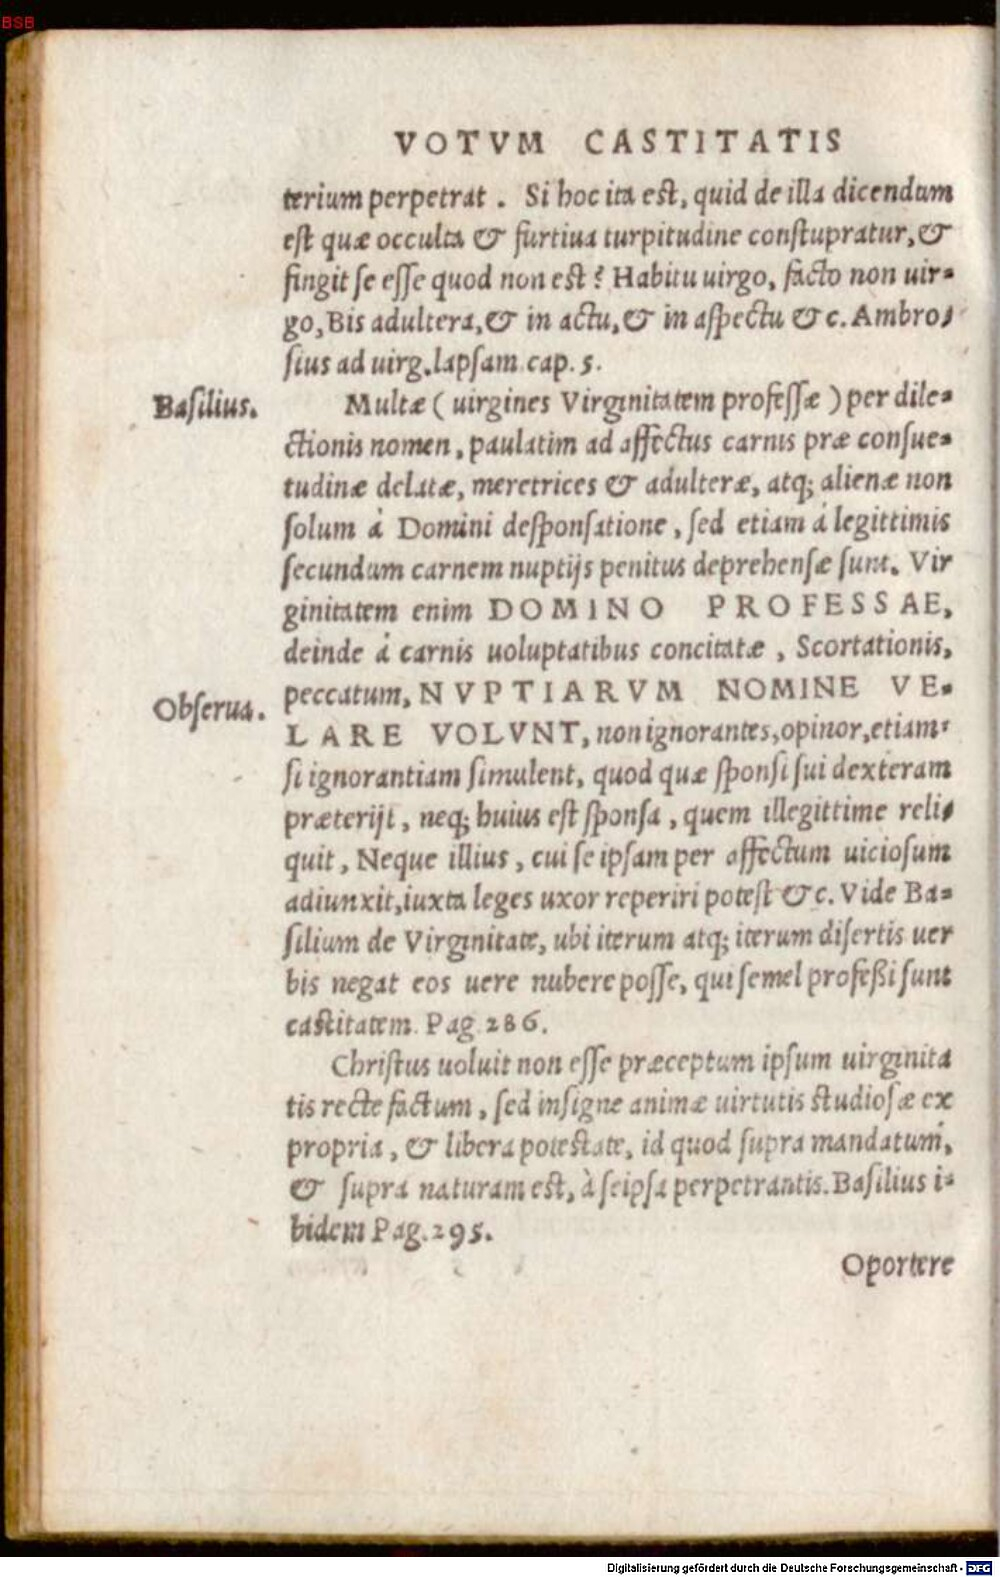 BSB
VOTVM CASTITATIS
terium perpetrat. Si hoc ita est, quid de illa dicendum
est quæ occulta & furtiua turpitudine constupratur, &
fingit se esse quod non est? Habitu uirgo, facto non uir-
go, Bis adultera, & in actu, & in aspectu &c. Ambro-
sius ad uirg. lapsam cap. 5.
Basilius.
Multæ (uirgines Virginitatem professæ) per dile-
ctionis nomen, paulatim ad affectus carnis præ consue-
tudinæ delatæ, meretrices & adulteræ, atq; alienæ non
solum á Domini desponsatione, sed etiam á legittimis
secundum carnem nuptijs penitus deprehensæ sunt. Vir
ginitatem enim DOMINO PROFESSAE,
deinde á carnis uoluptatibus concitatæ, Scortationis,
Obserua.
peccatum, NVPTIARVM NOMINE VE-
LARE VOLVNT, non ignorantes, opinor, etiam-
si ignorantiam simulent, quod quæ sponsi sui dexteram
præterijt, neq; huius est sponsa, quem illegittime reli-
quit, Neque illius, cui se ipsam per affectum uiciosum
adiunxit, iuxta leges uxor reperiri potest &c. Vide Ba-
silium de Virginitate, ubi iterum atq; iterum disertis uer
bis negat eos uere nubere posse, qui semel profeßi sunt
castitatem. Pag 286.
Christus uoluit non esse præceptum ipsum uirginita
tis recte factum, sed insigne animæ uirtutis studiosæ ex
propria, & libera potestate, id quod supra mandatum,
& supra naturam est, à seipsa perpetrantis. Basilius i-
bidem Pag. 295.
Oportere
Digitalisierung gefördert durch die Deutsche Forschungsgemeinschaft - DFG